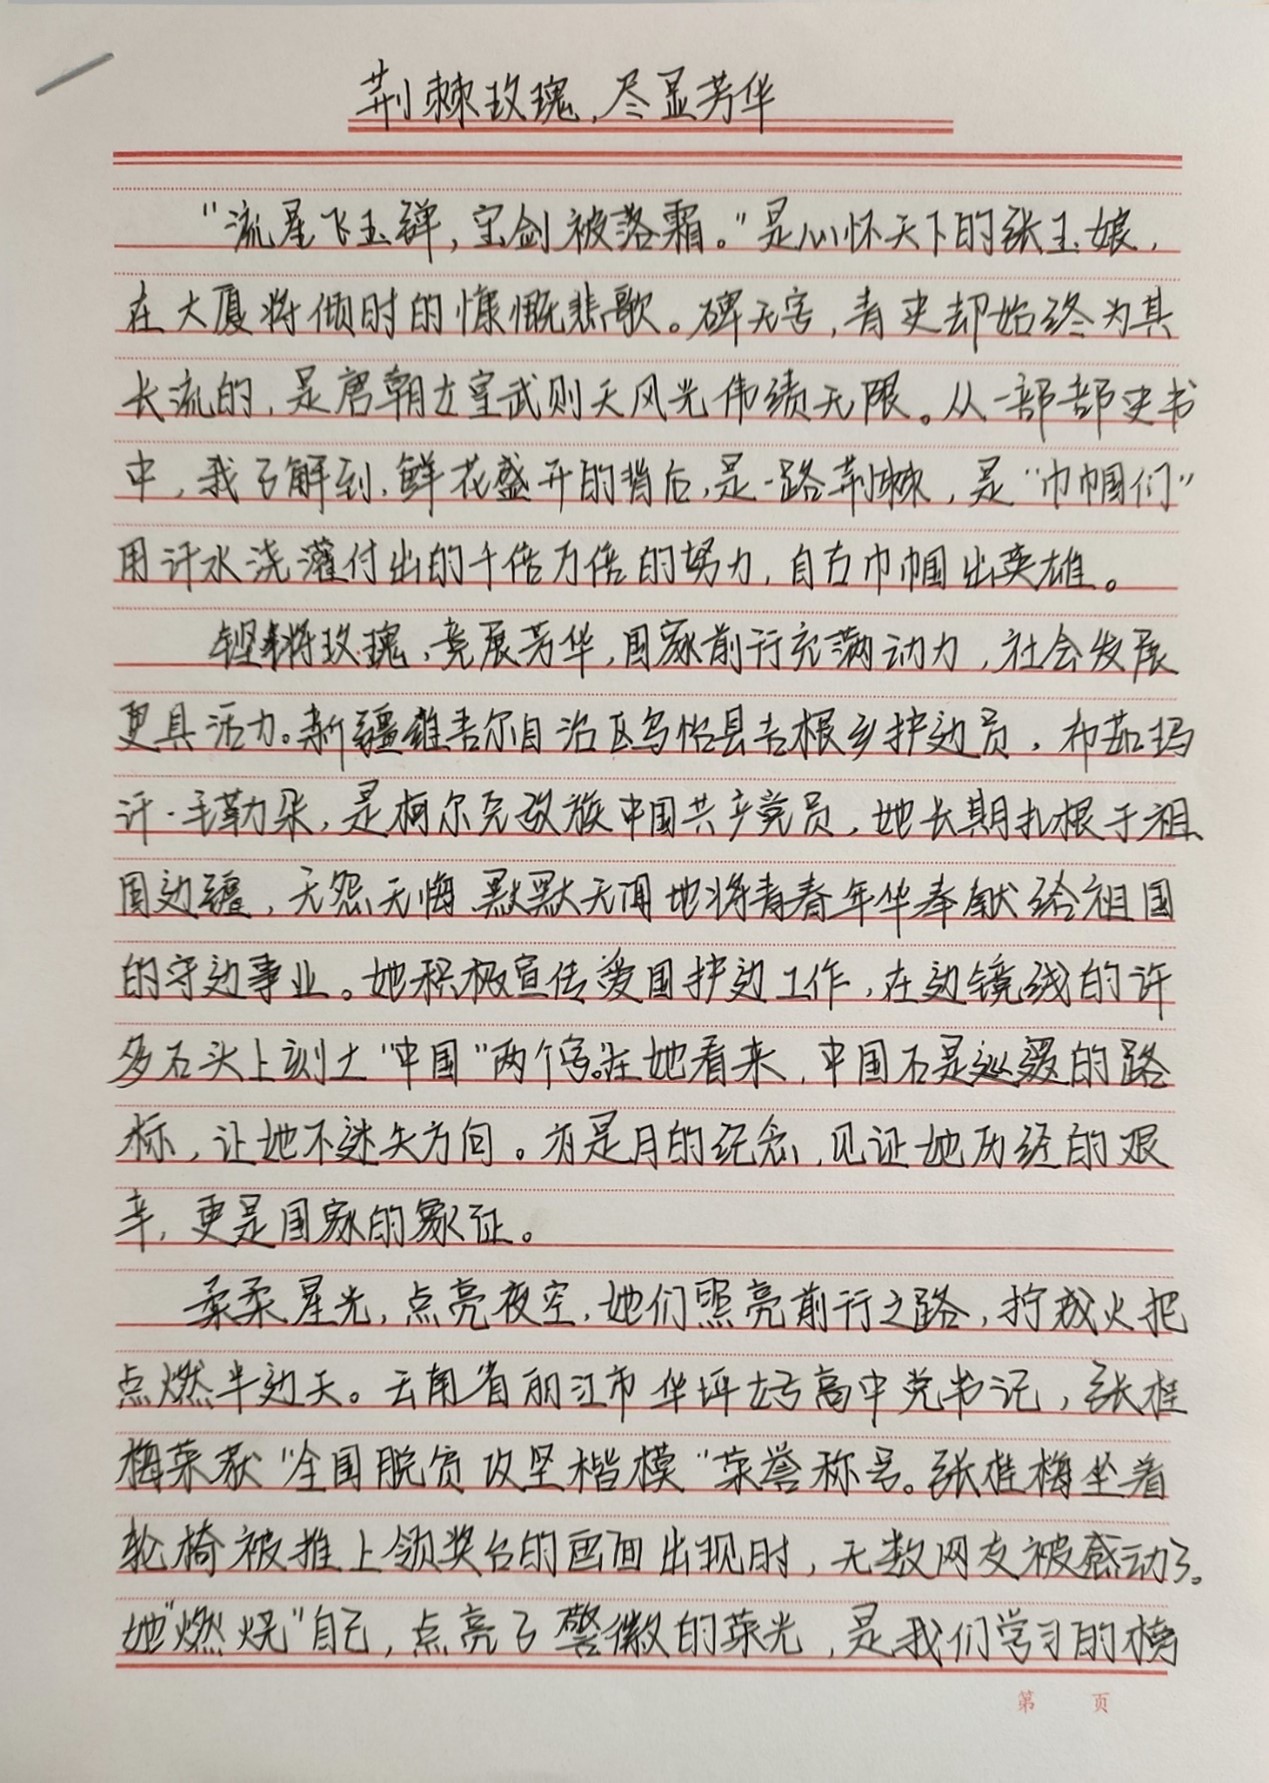 荆棘玫瑰，尽显芳华
“流星飞玉弹，宝剑被落霜。”是心怀天下的张玉娘，
在大厦将倾时的慷慨悲歌。碑无字，青史却始终为其
长流的，是唐朝女皇武则天风光伟绩无限。从一部部史书
中，我了解到，鲜花盛开的背后，是一路荆棘，是“巾帼们”
用汗水浇灌付出的千倍万倍的努力，自古巾帼出英雄。
铿锵玫瑰，竞展芳华，国家前行充满动力，社会发展
更具活力。新疆维吾尔自治区乌恰县吉根乡护边员，布茹玛
汗·毛勒朵，是柯尔克孜族中国共产党员，她长期扎根于祖
国边疆，无怨无悔、默默无闻地将青春年华奉献给祖国
的守边事业。她积极宣传爱国护边工作，在边境线的许
多石头上刻上“中国”两个字。在她看来，中国石是巡逻的路
标，让她不迷失方向。亦是月的纪念，见证她历经的艰
辛，更是国家的象征。
柔柔星光，点亮夜空，她们照亮前行之路，拧成火把
点燃半边天。云南省丽江市华坪女子高中党书记，张桂
梅荣获“全国脱贫攻坚楷模”荣誉称号。张桂梅坐着
轮椅被推上领奖台的画面出现时，无数网友被感动了。
她“燃烧”自己，点亮了警徽的荣光，是我们学习的榜
第 页